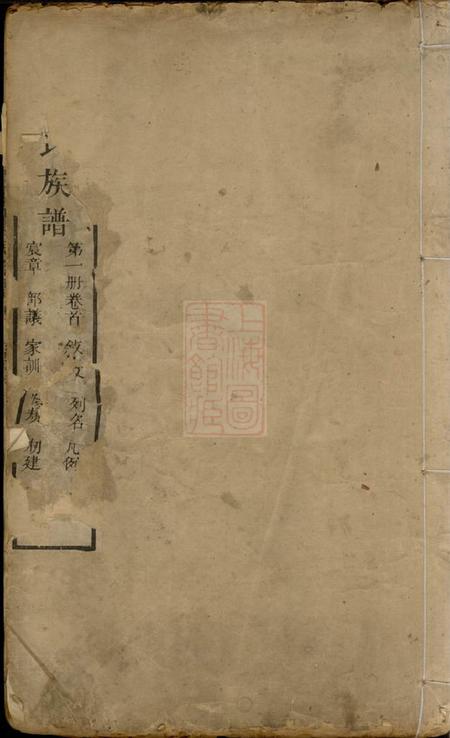 族譜
第一冊卷首 敘文 列名 凡例
宸章 部議 家訓 初建
上海圖
書館藏